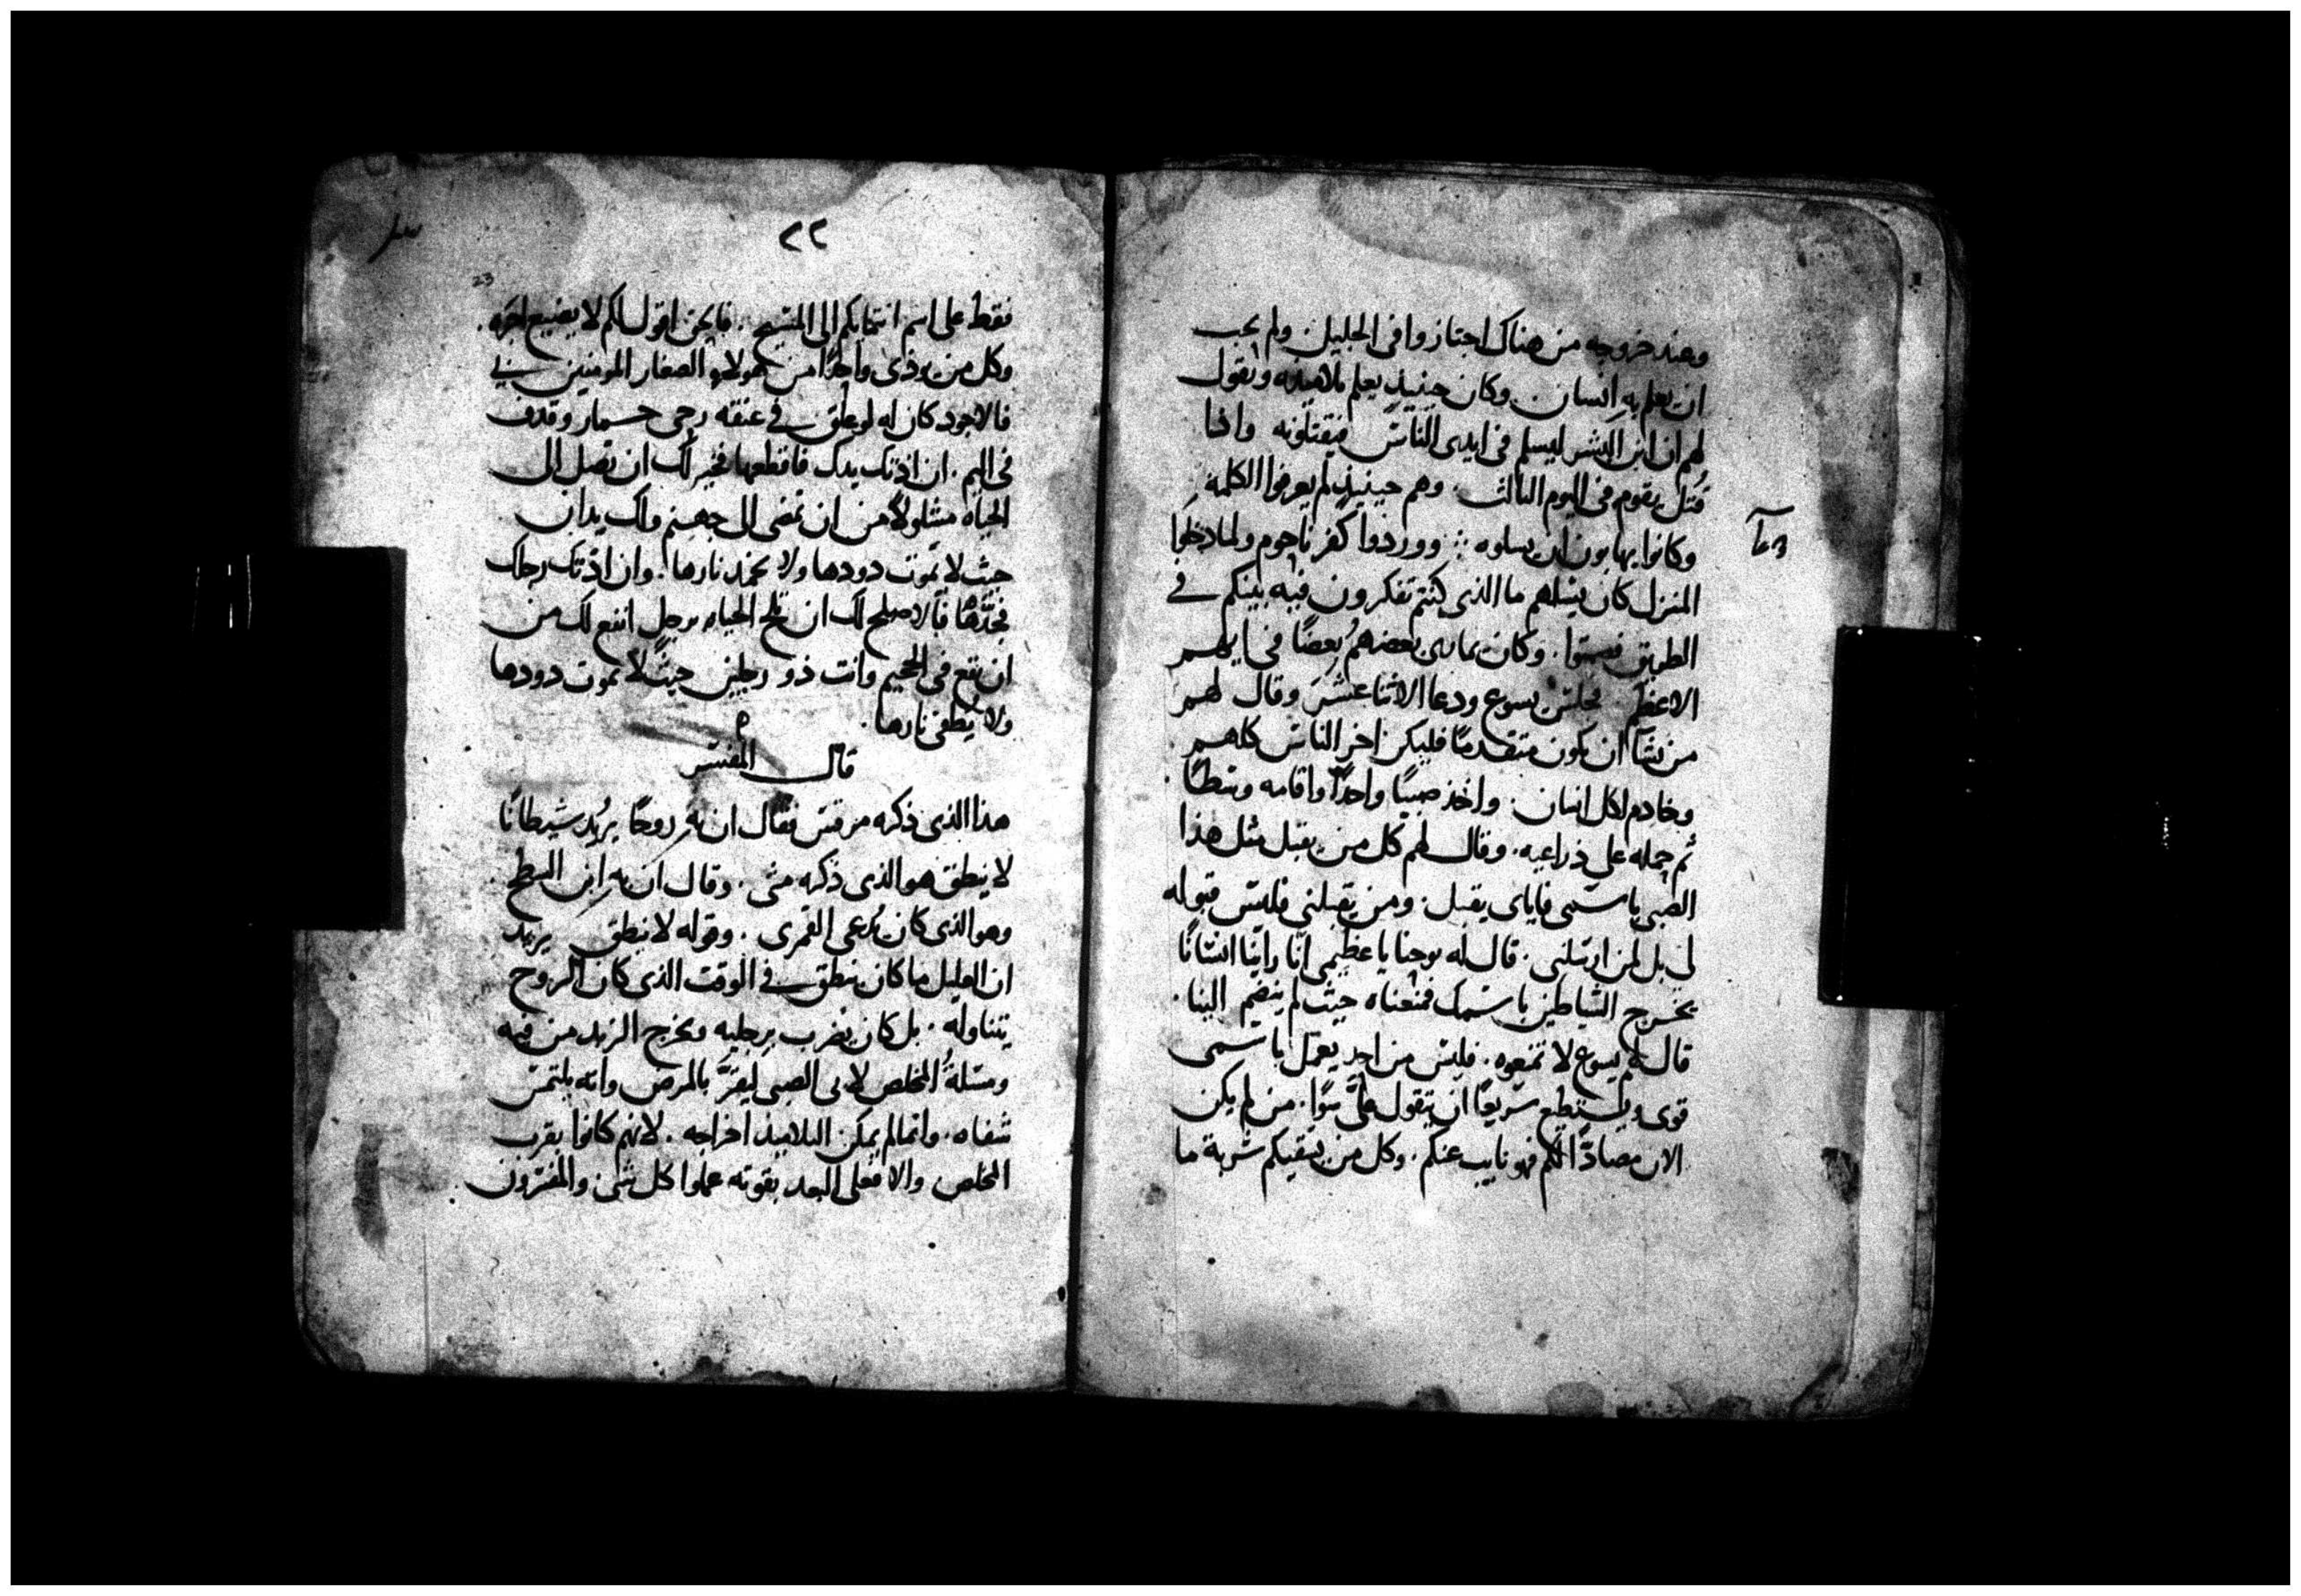 وعند خروجه من هناك اجتازوا في الجليل ولم يحب
ان يعلم به انسان وكان حينيذ يعلم تلاميذه ويقول
لهم ان ابن البشر ليسلم في ايدي الناس فيقتلونه واذا
قُتل يقوم في اليوم الثالث. وهم حينيذ لم يعرفوا الكلمه
وكانوا يهابون ان يسلوه ⁘ ووردوا كفرناحوم ولما دخلوا
المنزل كان يسلهم ما الذي كنتم تفكرون فيه بينكم في
الطريق فصمتوا. وكان يمارى بعضهم بعضًا في ايهم
الاعظم فجلس يسوع ودعا الاثنا عشر وقال لهم
من يشآ ان يكون متقدمًا فليكن اخر الناس كلهم
وخادم لكل انسان. واخذ صبيًا واحدًا واقامه وسطًا
ثم حمله على ذراعيه. وقال لهم كل من يقبل مثل هذا
الصبي باسمي فاياي يقبل. ومن يقبلني فليس قبوله
لي بل لمن ارسلني. قال له يوحنا يا عظيمي انّا راينا انسانًا
يخرج الشياطين باسمك فمنعناه حيث لم ينضم الينا.
قال لهم يسوع لا تمنعوه. فليس من احد يعمل باسمي
قوى ويستطيع سريعًا ان يقول عليَّ سوًا. من لم يكن
الان مصادًّا لكم فهو نايب عنكم. وكل من يسقيكم شربة ما
٢٢
23
فقط على اسم انتمايكم الى المسيح. فالحق اقول لكم لا يضيع اجره.
وكل من يوذي واحدًا من هولاء الصغار المومنين بي
فالاجود كان له لو علق في عنقه رحى حمار وقذف
في اليم. ان اذتك يدك فاقطعها فخير لك ان تصل الى
الحياه مشلولاً من ان تمضى الى جهنم ولك يدان
حيث لا تموت دودها ولا تخمد نارها. وان اذتك رجلك
فجُدّها فالاصلح لك ان تلج الحياه برجل انفع لك من
ان تقع في الجحيم وانت ذو رجلين حيث لا تموت دودها
ولا يُطفى نارها.
قال المفسر
هذا الذي ذكره مرقس فقال ان به روحًا يُريد شيطانًا
لا ينطق هو الذي ذكره متى. وقال ان به ابن السطح.
وهو الذي كان يُدعى القمرى. وقوله لا ينطق يريد
ان العليل ما كان ينطق في الوقت الذي كان الروح
يتناوله. بل كان يضرب برجليه ويخرج الزبد من فيه
ومسلةُ المخلص لابي الصبي ليقرَّ بالمرض وانه يلتمس
شفاه. وانما لم يمكن التلاميذ اخراجه. لانهم كانوا بقرب
المخلص والا فعلى البعد بقوته عملوا كل شي والمفسرون